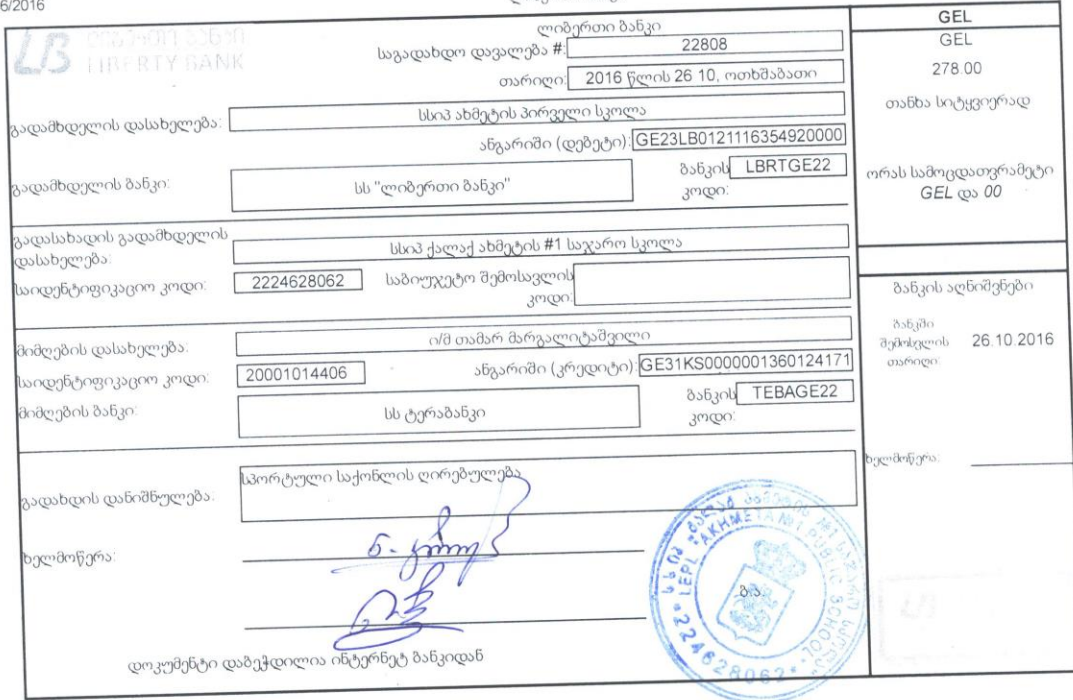 6/2016
ლიბერთი ბანკი
LIBERTY BANK
ლიბერთი ბანკი
საგადახდო დავალება #: 22808
თარიღი: 2016 წლის 26 10, ოთხშაბათი
გადამხდელის დასახელება: სსიპ ახმეტის პირველი სკოლა
ანგარიში (დებეტი): GE23LB0121116354920000
გადამხდელის ბანკი: სს "ლიბერთი ბანკი" ბანკის კოდი: LBRTGE22
გადასახადის გადამხდელის დასახელება: სსიპ ქალაქ ახმეტის #1 საჯარო სკოლა
საიდენტიფიკაციო კოდი: 2224628062 საბიუჯეტო შემოსავლის კოდი:
მიმღების დასახელება: ი/მ თამარ მარგალიტაშვილი
საიდენტიფიკაციო კოდი: 20001014406 ანგარიში (კრედიტი): GE31KS0000001360124171
მიმღების ბანკი: სს ტერაბანკი ბანკის კოდი: TEBAGE22
გადახდის დანიშნულება: სპორტული საქონლის ღირებულება
ხელმოწერა:
ბ.ა.
დოკუმენტი დაბეჭდილია ინტერნეტ ბანკიდან
GEL
GEL
278.00
თანხა სიტყვიერად
ორას სამოცდათვრამეტი
GEL და 00
ბანკის აღნიშვნები
ბანკში
შემოსვლის 26.10.2016
თარიღი:
ხელმოწერა:
LEPL "AKHMETA №1 PUBLIC SCHOOL"
224628062
LB